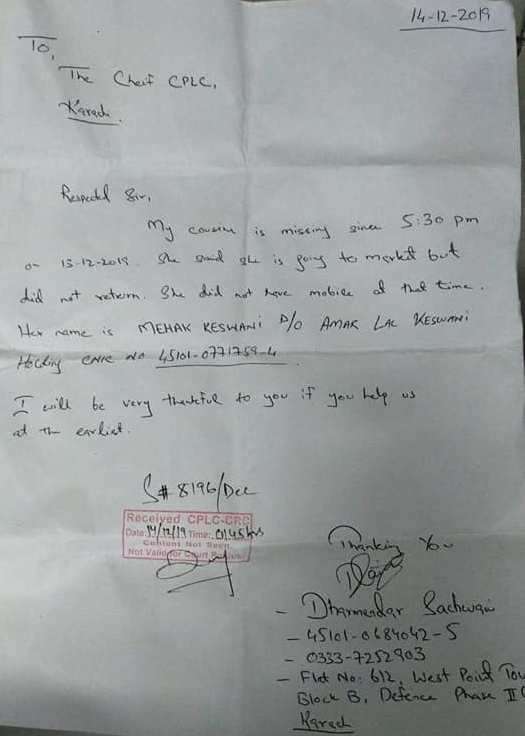 14-12-2019
To,
The Cheif CPLC,
Karachi.
Respected Sir,
My cousin is missing since 5:30 pm
on 13-12-2019. She said she is going to market but
did not return. She did not have mobile at that time.
Her name is MEHAK KESWANI D/O AMAR LAL KESWANI
Holding CNIC NO 45101-0771759-4.
I will be very thankful to you if you help us
at the earliest.
S# 8196/Dec
Received CPLC-CRC
Date: 14/12/19 Time: 0145 hrs
Content Not Seen
Not Valid for Court
Thanking You
- Dharmendar Sachwani
- 45101-0684042-5
- 0333-7252903
- Flat No: 612, West Point Tow
Block B, Defence Phase II
Karachi